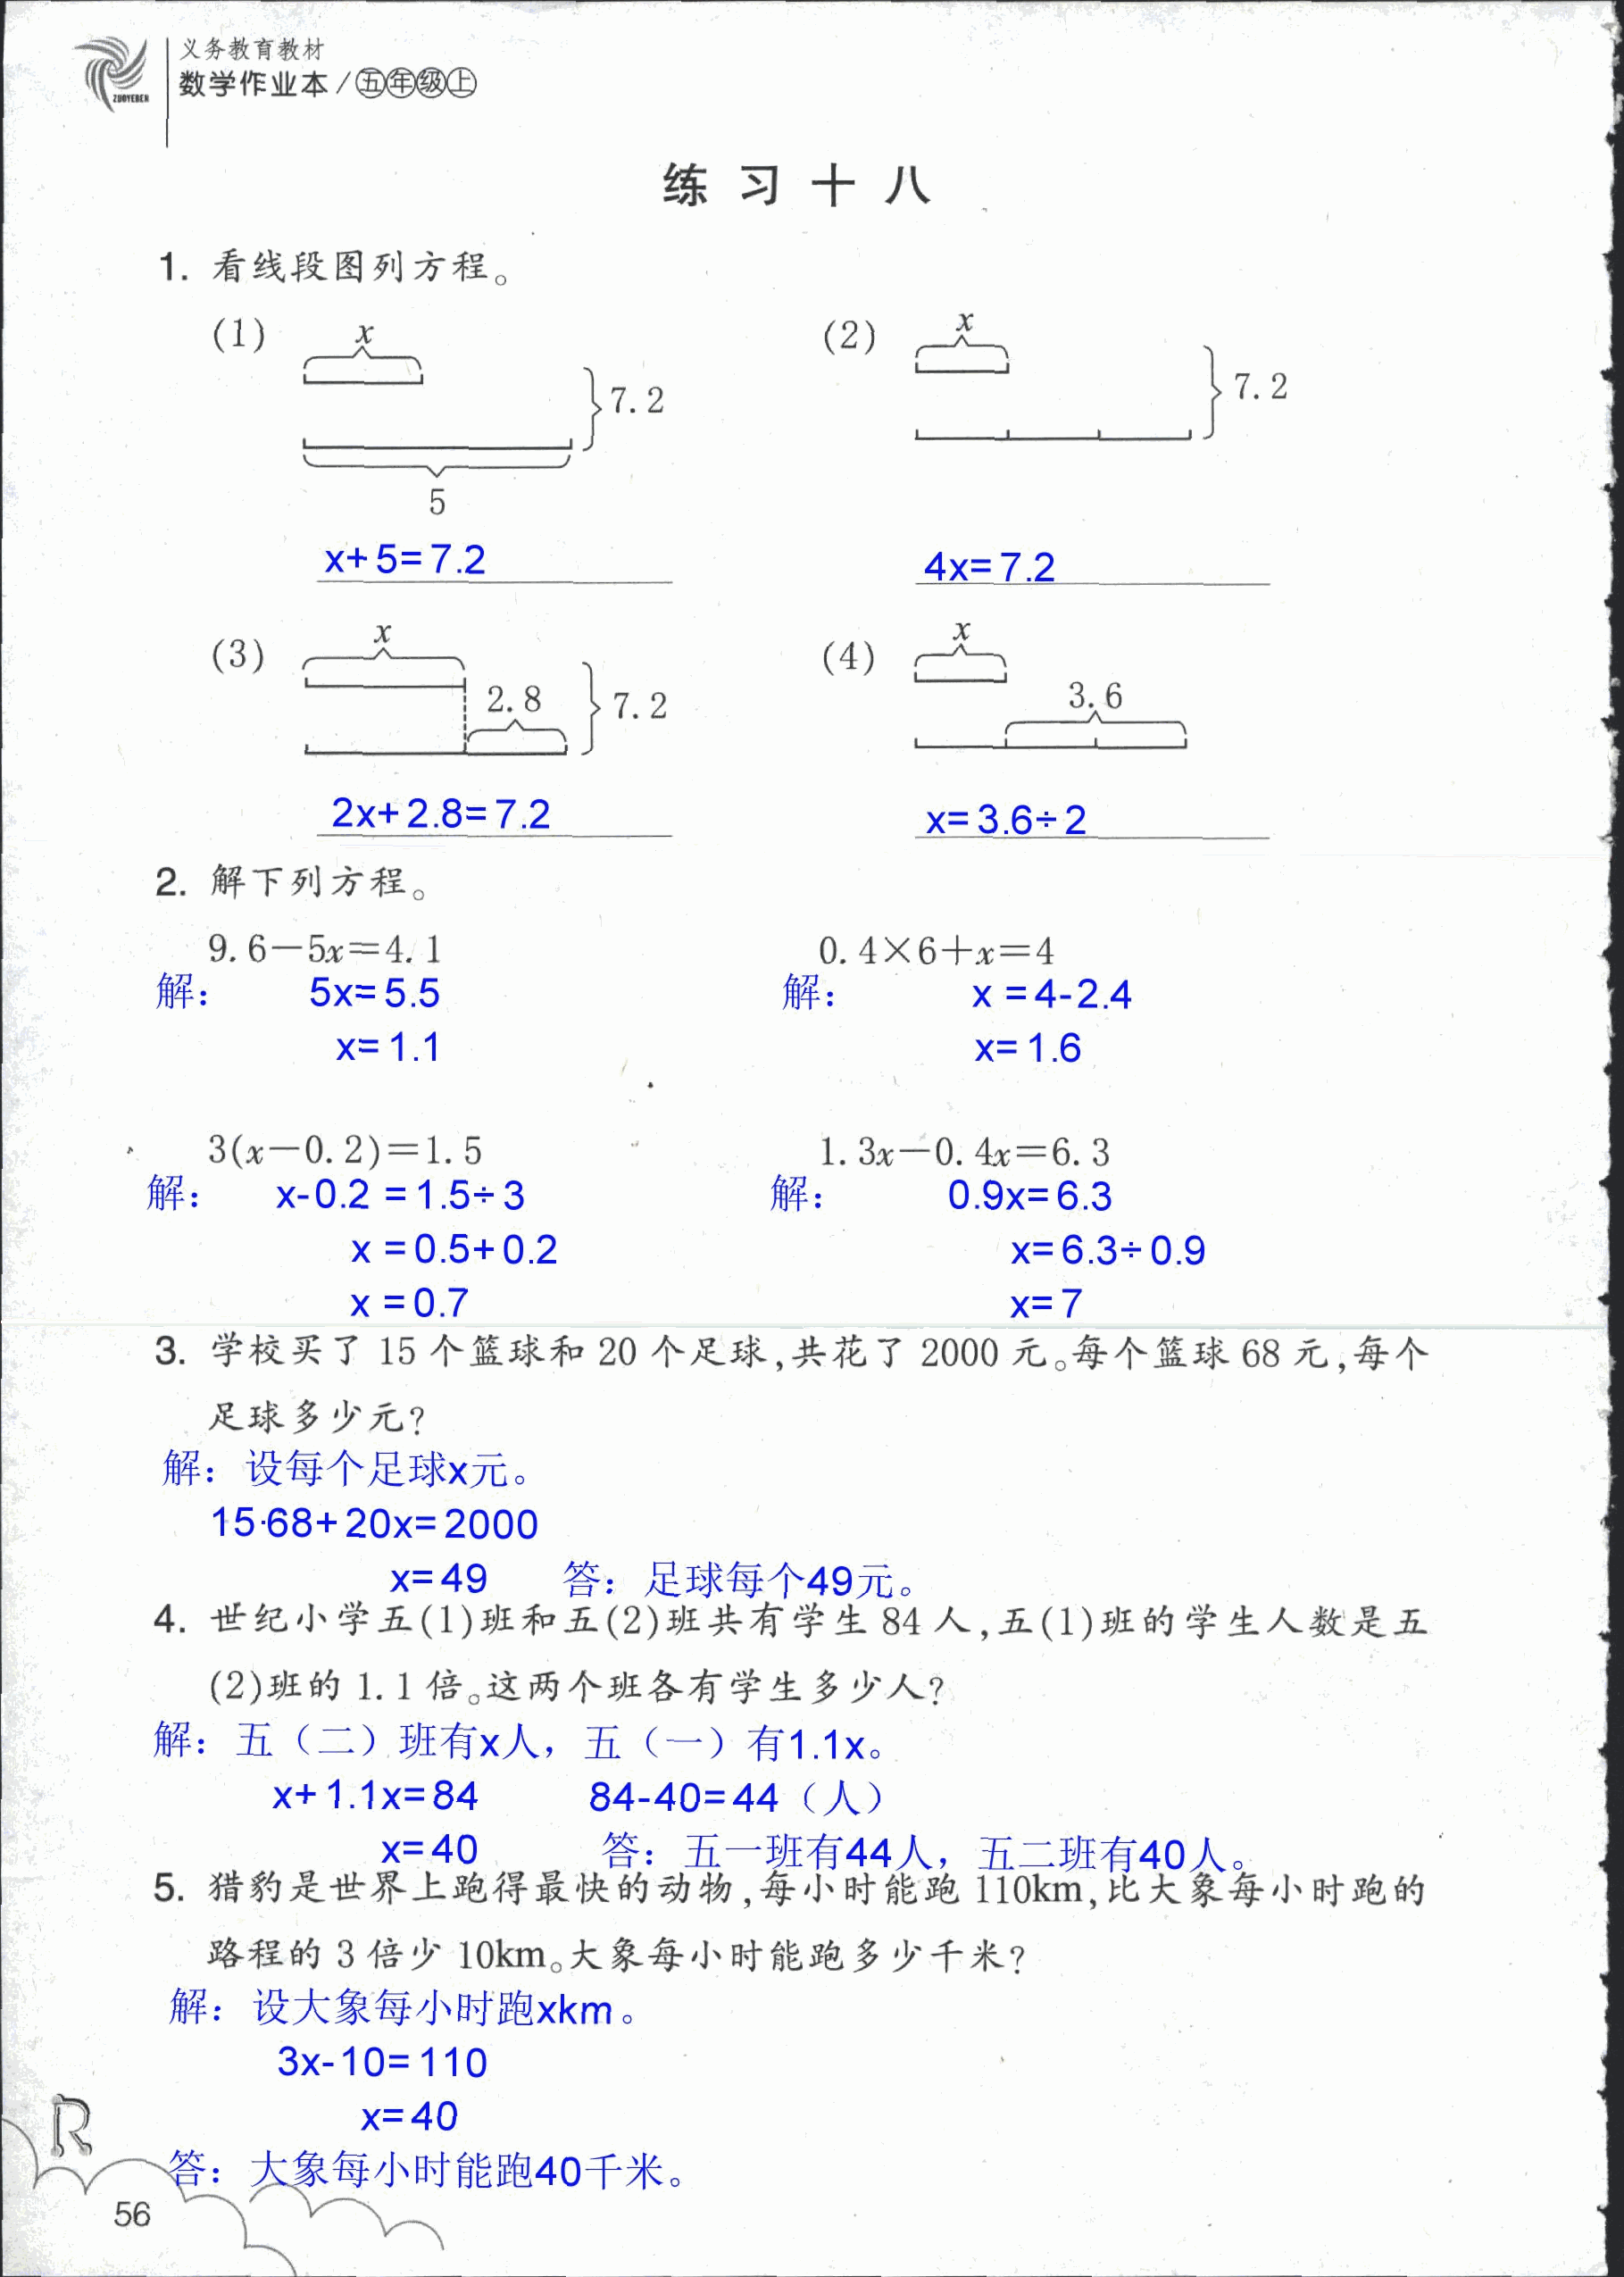 义务教育教材
数学作业本/五年级上
ZUOYEBEN
练习十八
1. 看线段图列方程。
(1) x
7.2
5
x+5=7.2
(2) x
7.2
4x=7.2
(3) x
2.8
7.2
2x+2.8=7.2
(4) x
3.6
x=3.6÷2
2. 解下列方程。
9.6-5x=4.1
解: 5x=5.5
x=1.1
0.4×6+x=4
解: x =4-2.4
x=1.6
3(x-0.2)=1.5
解: x-0.2 =1.5÷3
x =0.5+0.2
x =0.7
1.3x-0.4x=6.3
解: 0.9x=6.3
x=6.3÷0.9
x=7
3. 学校买了 15 个篮球和 20 个足球,共花了 2000 元。每个篮球 68 元,每个
足球多少元?
解：设每个足球x元。
15·68+20x=2000
x=49 答：足球每个49元。
4. 世纪小学五(1)班和五(2)班共有学生 84 人,五(1)班的学生人数是五
(2)班的 1.1 倍。这两个班各有学生多少人?
解：五（二）班有x人，五（一）有1.1x。
x+1.1x=84 84-40=44（人）
x=40 答：五一班有44人，五二班有40人。
5. 猎豹是世界上跑得最快的动物,每小时能跑 110km,比大象每小时跑的
路程的 3 倍少 10km。大象每小时能跑多少千米?
解：设大象每小时跑xkm。
3x-10=110
x=40
答：大象每小时能跑40千米。
R
56